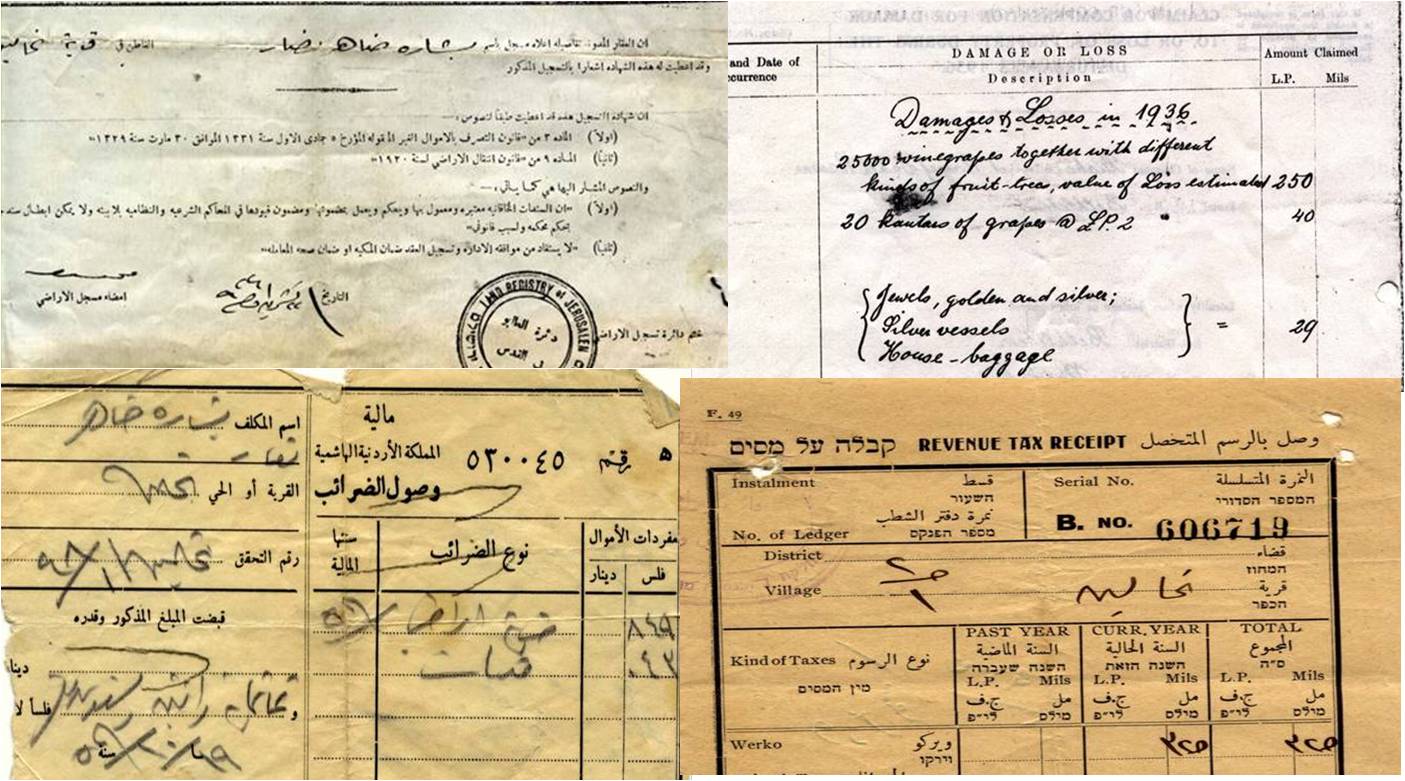 ان العقار المدون تفاصيله اعلاه مسجل باسم بشاره ضاهر نصار القاطن في قرية نحالين
وقد اعطيت له هذه الشهاده اشعارا بالتسجيل المذكور
ان شهادة التسجيل هذه قد اعطيت طبقا لنصوص :—
(اولا) الماده ٣ من "قانون التصرف بالاموال الغير المنقوله المؤرخ ٥ جمادى الاول سنة ١٣٣١ الموافق ٣٠ مارت سنة ١٣٢٩"
(ثانيا) الماده ٩ من "قانون انتقال الاراضي لسنة ١٩٢٠"
والنصوص المشار اليها هي كما يأتي :—
(اولا) "ان السندات الخاقانيه معتبره ومعمول بها ويحكم ويعمل بمضمونها ومضمون قيودها في المحاكم الشرعيه والنظاميه بلا بينه ولا يمكن ابطال سند
بحكم محكمه ولسبب قانوني"
(ثانيا) "لا يستفاد من موافقه الاداره وتسجيل العقد ضمان الملكيه او ضمان صحه المعامله"
امضاء مسجل الاراضي
التاريخ
ختم دائرة تسجيل الاراضي
LAND REGISTRY of JERUSALEM
دائرة الطابو
القدس
and Date of
ccurrence
DAMAGE OR LOSS
Description
Amount Claimed
L.P. Mils
Damages & Losses in 1936
25000 vinegrapes together with different
kinds of fruit-trees, value of Loss estimated 250
20 kantars of grapes @ L.P. 2 " 40
Jewels, golden and silver;
Silver vessels = 29
House-baggage
اسم المكلف بشاره ضاهر
نصار
القرية أو الحي نحالين
رقم التحقق
قبضت المبلغ المذكور وقدره
دينار
فلسا لا
سنة
مالية
المملكة الأردنية الهاشمية
وصول الضرائب
ه رقم ٥٣٠٠٤٥
مفردات الأموال
فلس دينار
نوع الضرائب
سنتها
المالية
٨٤٩
٠٤٢
F. 49
קבלה על מסים REVENUE TAX RECEIPT وصل بالرسم المتحصل
Instalment قسط
השעור
Serial No. النمرة المتسلسلة
המספר הסדורי
No. of Ledger نمرة دفتر الشطب
מספר הפנקס
B. NO. 606719
District قضاء
המחוז
Village نحالين قرية
הכפר
Kind of Taxes نوع الرسوم
מין המסים
PAST YEAR
السنة الماضية
השנה שעברה
L.P. Mils
ج.ف مل
לי״פ מילס
CURR. YEAR
السنة الحالية
השנה הזאת
L.P. Mils
ج.ف مل
לי״פ מילס
TOTAL
المجموع
ס״ה
L.P. Mils
ج.ف مل
לי״פ מילס
Werko ويركو
וירקו